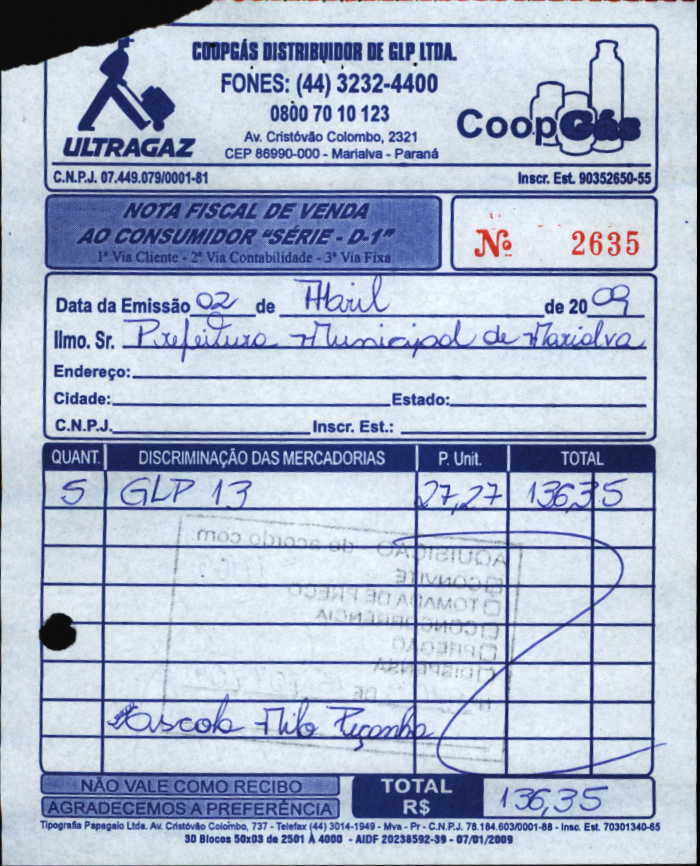 COOPGÁS DISTRIBUIDOR DE GLP LTDA.
FONES: (44) 3232-4400
0800 70 10 123
Av. Cristóvão Colombo, 2321
CEP 86990-000 - Marialva - Paraná
ULTRAGAZ
CoopGás
C.N.P.J. 07.449.079/0001-81
Inscr. Est. 90352650-55
NOTA FISCAL DE VENDA
AO CONSUMIDOR "SÉRIE - D-1"
1ª Via Cliente - 2ª Via Contabilidade - 3ª Via Fixa
Nº 2635
Data da Emissão 02 de Abril de 2009
Ilmo. Sr. Prefeitura Municipal de Marialva
Endereço:
Cidade: Estado:
C.N.P.J. Inscr. Est.:
QUANT. DISCRIMINAÇÃO DAS MERCADORIAS P. Unit. TOTAL
5 GLP 13 27,27 136,35
AQUISIÇÃO de acordo com
CONVITE
TOMADA DE PREÇO
CONCORRÊNCIA
PREGÃO
DISPENSA
DE
Nilo Peçanha
NÃO VALE COMO RECIBO
AGRADECEMOS A PREFERÊNCIA
TOTAL R$ 136,35
Tipografia Papagaio Ltda. Av. Cristóvão Colombo, 737 - Telefax (44) 3014-1949 - Mva - Pr - C.N.P.J. 78.184.603/0001-88 - Insc. Est. 70301340-65
30 Blocos 50x03 de 2501 À 4000 - AIDF 20238592-39 - 07/01/2009